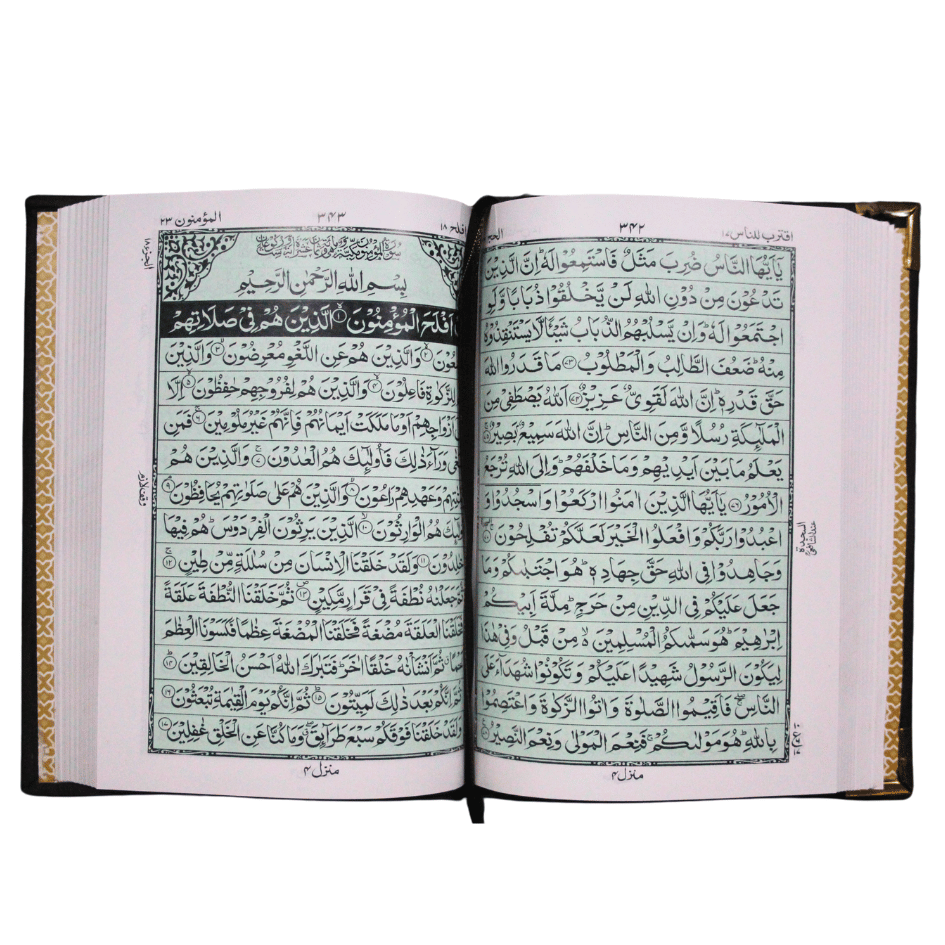 اقترب للناس ١٧
٣٤٢
الحج
يَاَيُّهَا النَّاسُ ضُرِبَ مَثَلٌ فَاسْتَمِعُوْا لَهٗ اِنَّ الَّذِيْنَ
تَدْعُوْنَ مِنْ دُوْنِ اللّٰهِ لَنْ يَّخْلُقُوْا ذُبَابًا وَّلَوِ
اجْتَمَعُوْا لَهٗ وَاِنْ يَّسْلُبْهُمُ الذُّبَابُ شَيْئًا لَّا يَسْتَنْقِذُوْهُ
مِنْهُ ضَعُفَ الطَّالِبُ وَالْمَطْلُوْبُ ٧٣ مَا قَدَرُوا اللّٰهَ
حَقَّ قَدْرِهٖ اِنَّ اللّٰهَ لَقَوِيٌّ عَزِيْزٌ ٧٤ اَللّٰهُ يَصْطَفِيْ مِنَ
الْمَلٰٓئِكَةِ رُسُلًا وَّمِنَ النَّاسِ اِنَّ اللّٰهَ سَمِيْعٌ بَصِيْرٌ ٧٥
يَعْلَمُ مَا بَيْنَ اَيْدِيْهِمْ وَمَا خَلْفَهُمْ وَاِلَى اللّٰهِ تُرْجَعُ
الْاُمُوْرُ ٧٦ يَاَيُّهَا الَّذِيْنَ اٰمَنُوا ارْكَعُوْا وَاسْجُدُوْا وَ
اعْبُدُوْا رَبَّكُمْ وَافْعَلُوا الْخَيْرَ لَعَلَّكُمْ تُفْلِحُوْنَ ٧٧
وَجَاهِدُوْا فِي اللّٰهِ حَقَّ جِهَادِهٖ هُوَ اجْتَبٰىكُمْ وَمَا
جَعَلَ عَلَيْكُمْ فِي الدِّيْنِ مِنْ حَرَجٍ مِلَّةَ اَبِيْكُمْ
اِبْرٰهِيْمَ هُوَ سَمّٰىكُمُ الْمُسْلِمِيْنَ مِنْ قَبْلُ وَفِيْ هٰذَا
لِيَكُوْنَ الرَّسُوْلُ شَهِيْدًا عَلَيْكُمْ وَتَكُوْنُوْا شُهَدَآءَ عَلَى
النَّاسِ فَاَقِيْمُوا الصَّلٰوةَ وَاٰتُوا الزَّكٰوةَ وَاعْتَصِمُوْا
بِاللّٰهِ هُوَ مَوْلٰىكُمْ فَنِعْمَ الْمَوْلٰى وَنِعْمَ النَّصِيْرُ ٧٨
السجدة
منزل ٤
المؤمنون ٢٣
٣٤٣
افلح ١٨
الجزء ١٨
بِسْمِ اللّٰهِ الرَّحْمٰنِ الرَّحِيْمِ
اَفْلَحَ الْمُؤْمِنُوْنَ ١ الَّذِيْنَ هُمْ فِيْ صَلَاتِهِمْ
ـعُوْنَ ٢ وَالَّذِيْنَ هُمْ عَنِ اللَّغْوِ مُعْرِضُوْنَ ٣ وَالَّذِيْنَ
لِلزَّكٰوةِ فَاعِلُوْنَ ٤ وَالَّذِيْنَ هُمْ لِفُرُوْجِهِمْ حٰفِظُوْنَ ٥ اِلَّا
اَزْوَاجِهِمْ اَوْ مَا مَلَكَتْ اَيْمَانُهُمْ فَاِنَّهُمْ غَيْرُ مَلُوْمِيْنَ ٦ فَمَنِ
ـغٰى وَرَآءَ ذٰلِكَ فَاُولٰٓئِكَ هُمُ الْعٰدُوْنَ ٧ وَالَّذِيْنَ هُمْ
ـنٰتِهِمْ وَعَهْدِهِمْ رَاعُوْنَ ٨ وَالَّذِيْنَ هُمْ عَلٰى صَلَوٰتِهِمْ يُحَافِظُوْنَ ٩
ـئِكَ هُمُ الْوَارِثُوْنَ ١٠ الَّذِيْنَ يَرِثُوْنَ الْفِرْدَوْسَ هُمْ فِيْهَا
خٰلِدُوْنَ ١١ وَلَقَدْ خَلَقْنَا الْاِنْسَانَ مِنْ سُلٰلَةٍ مِّنْ طِيْنٍ ١٢
ـمَّ جَعَلْنٰهُ نُطْفَةً فِيْ قَرَارٍ مَّكِيْنٍ ١٣ ثُمَّ خَلَقْنَا النُّطْفَةَ عَلَقَةً
فَخَلَقْنَا الْعَلَقَةَ مُضْغَةً فَخَلَقْنَا الْمُضْغَةَ عِظٰمًا فَكَسَوْنَا الْعِظٰمَ
لَحْمًا ثُمَّ اَنْشَاْنٰهُ خَلْقًا اٰخَرَ فَتَبٰرَكَ اللّٰهُ اَحْسَنُ الْخَالِقِيْنَ ١٤
ـمَّ اِنَّكُمْ بَعْدَ ذٰلِكَ لَمَيِّتُوْنَ ١٥ ثُمَّ اِنَّكُمْ يَوْمَ الْقِيٰمَةِ تُبْعَثُوْنَ ١٦
وَلَقَدْ خَلَقْنَا فَوْقَكُمْ سَبْعَ طَرَآئِقَ وَمَا كُنَّا عَنِ الْخَلْقِ غٰفِلِيْنَ ١٧
منزل ٤